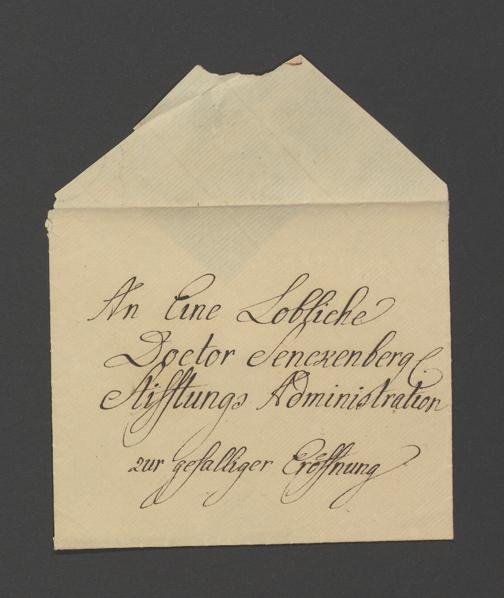 An Eine Lobliche
Doctor Senckenberg
Stifftungs Administration
zur gefalliger Eröffnung